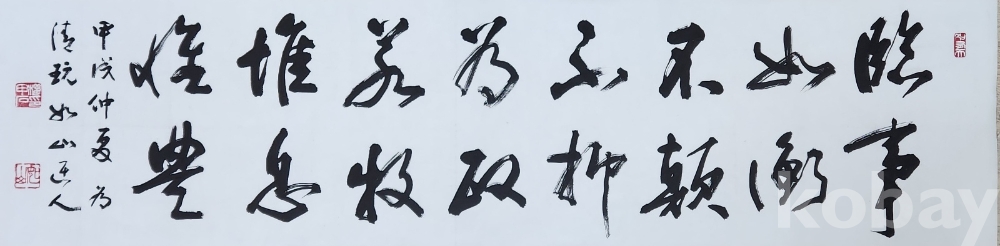 臨事
如衡
不顛
不抑
為政
若牧
惟息
惟豊
甲戌仲夏為
清玩如山人
kobay